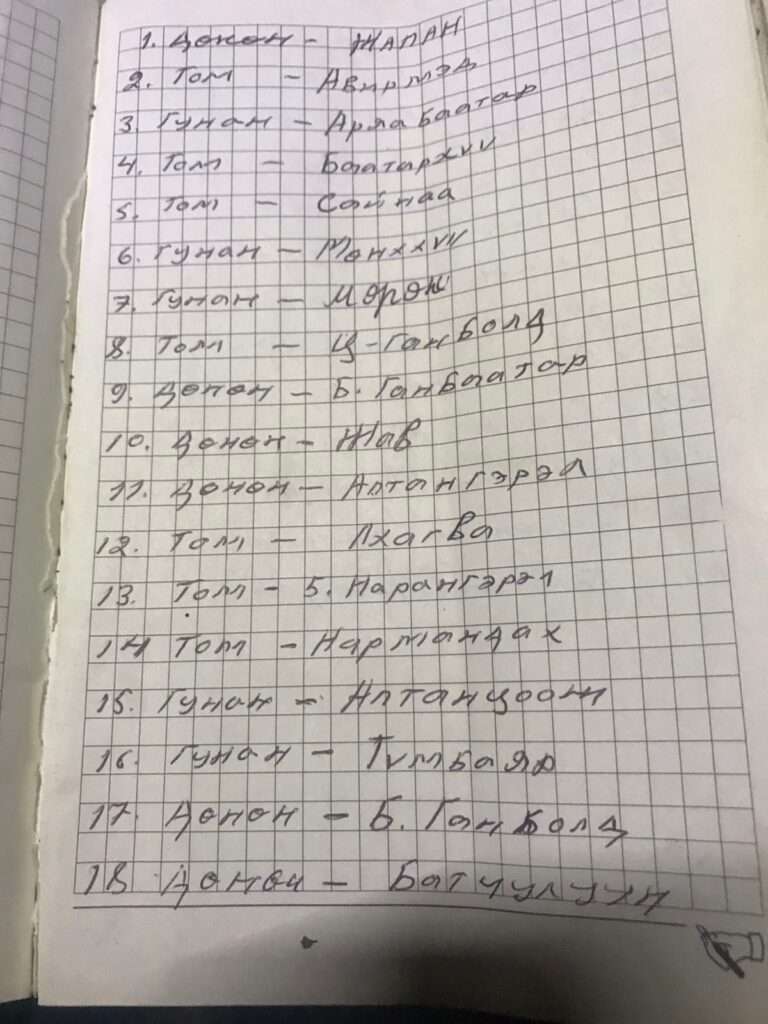 1. Донон - ЖАПАН
2. Том - Авирмэд
3. Гунан - Арлабаатар
4. Том - Баатархүү
5. Том - Сайнаа
6. Гунан - Монххүү
7. Гунан - Мөрөн
8. Том - Ц-Ганболд
9. Донон - Б. Ганбаатар
10. Донон - Жав
11. Донон - Алтангэрэл
12. Том - Лхагва
13. Том - Б. Нарангэрэл
14 Том - Нармандах
15. Гунан - Алтанцоож
16. Гунан - Түмбаяр
17. Донон - Б. Ганболд
18 Донон - Батчулуун